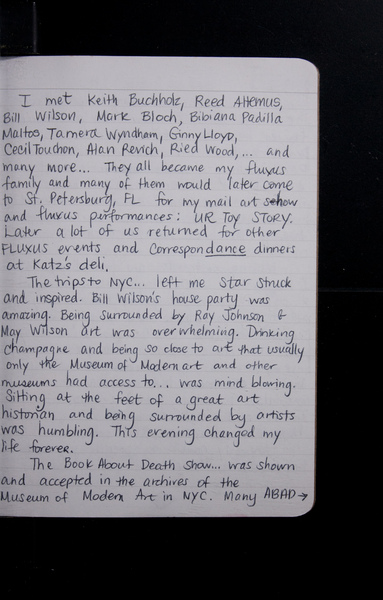 I met Keith Buchholz, Reed Altemus,
Bill Wilson, Mark Bloch, Bibiana Padilla
Maltos, Tamera Wyndham, Ginny Lloyd,
Cecil Touchon, Alan Revich, Ried Wood,... and
many more... They all became my fluxus
family and many of them would later come
to St. Petersburg, FL for my mail art show
and fluxus performances: UR TOY STORY.
Later a lot of us returned for other
FLUXUS events and Correspondance dinners
at Katz's deli.
The trips to NYC... left me star struck
and inspired. Bill Wilson's house party was
amazing. Being surrounded by Ray Johnson &
May Wilson art was overwhelming. Drinking
champagne and being so close to art that usually
only the Museum of Modern art and other
museums had access to... was mind blowing.
Sitting at the feet of a great art
historian and being surrounded by artists
was humbling. This evening changed my
life forever.
The Book About Death Show... was shown
and accepted in the archives of the
Museum of Modern Art in NYC. Many ABAD→